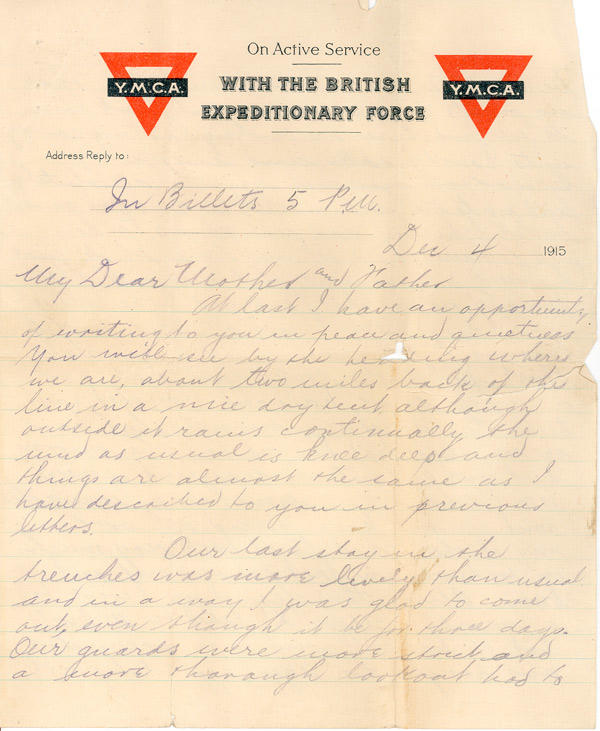 On Active Service
WITH THE BRITISH
EXPEDITIONARY FORCE
Y.M.C.A.
Y.M.C.A.
Address Reply to:
In Billets 5 P.M.
Dec 4 1915
My Dear Mother and Father
At last I have an opportunity
of writing to you in peace and quietness
You will see by the heading where
we are, about two miles back of the
line in a nice dry tent although
outside it rains continually the
mud as usual is knee deep and
things are almost the same as I
have described to you in previous
letters.
Our last stay in the
trenches was more lively than usual
and in a way I was glad to come
out, even though it be for three days.
Our guards were more strict and
a more thorough lookout had to